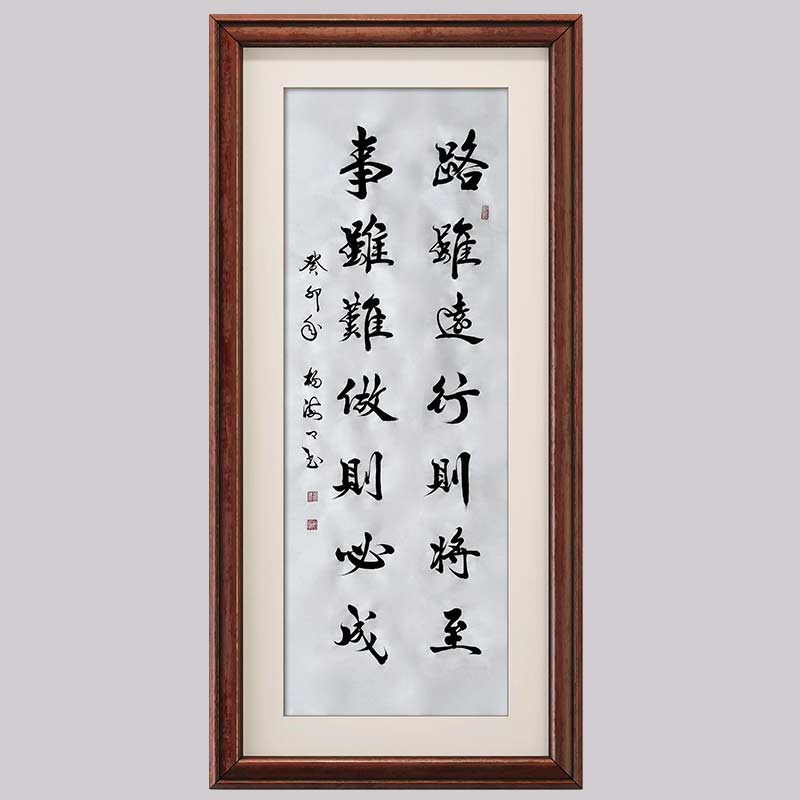 路雖遠行則将至
事雖難做則必成
癸卯年 楊海
书